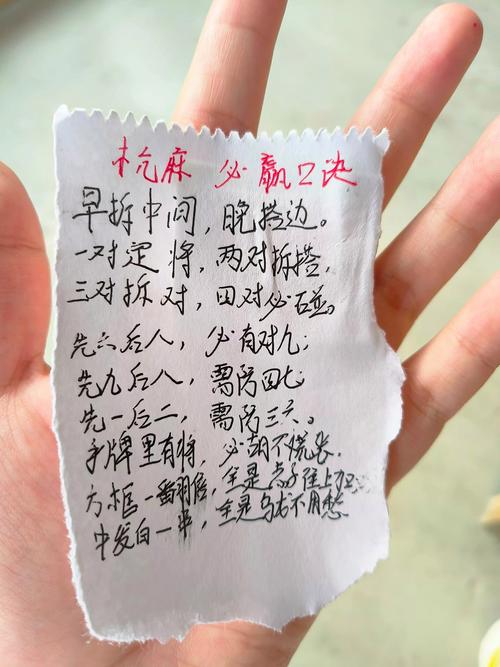 杭麻 必赢口诀
早拆中间，晚搭边。
一对定将，两对拆搭，
三对拆对，四对必碰。
先六后八，必有对九；
先九后八，需防四七
先一后二，需防三六。
手牌里有将，必胡不慌张.
方框一番翻倍，全是点子往上
中发白一串，全是乌龙不用愁